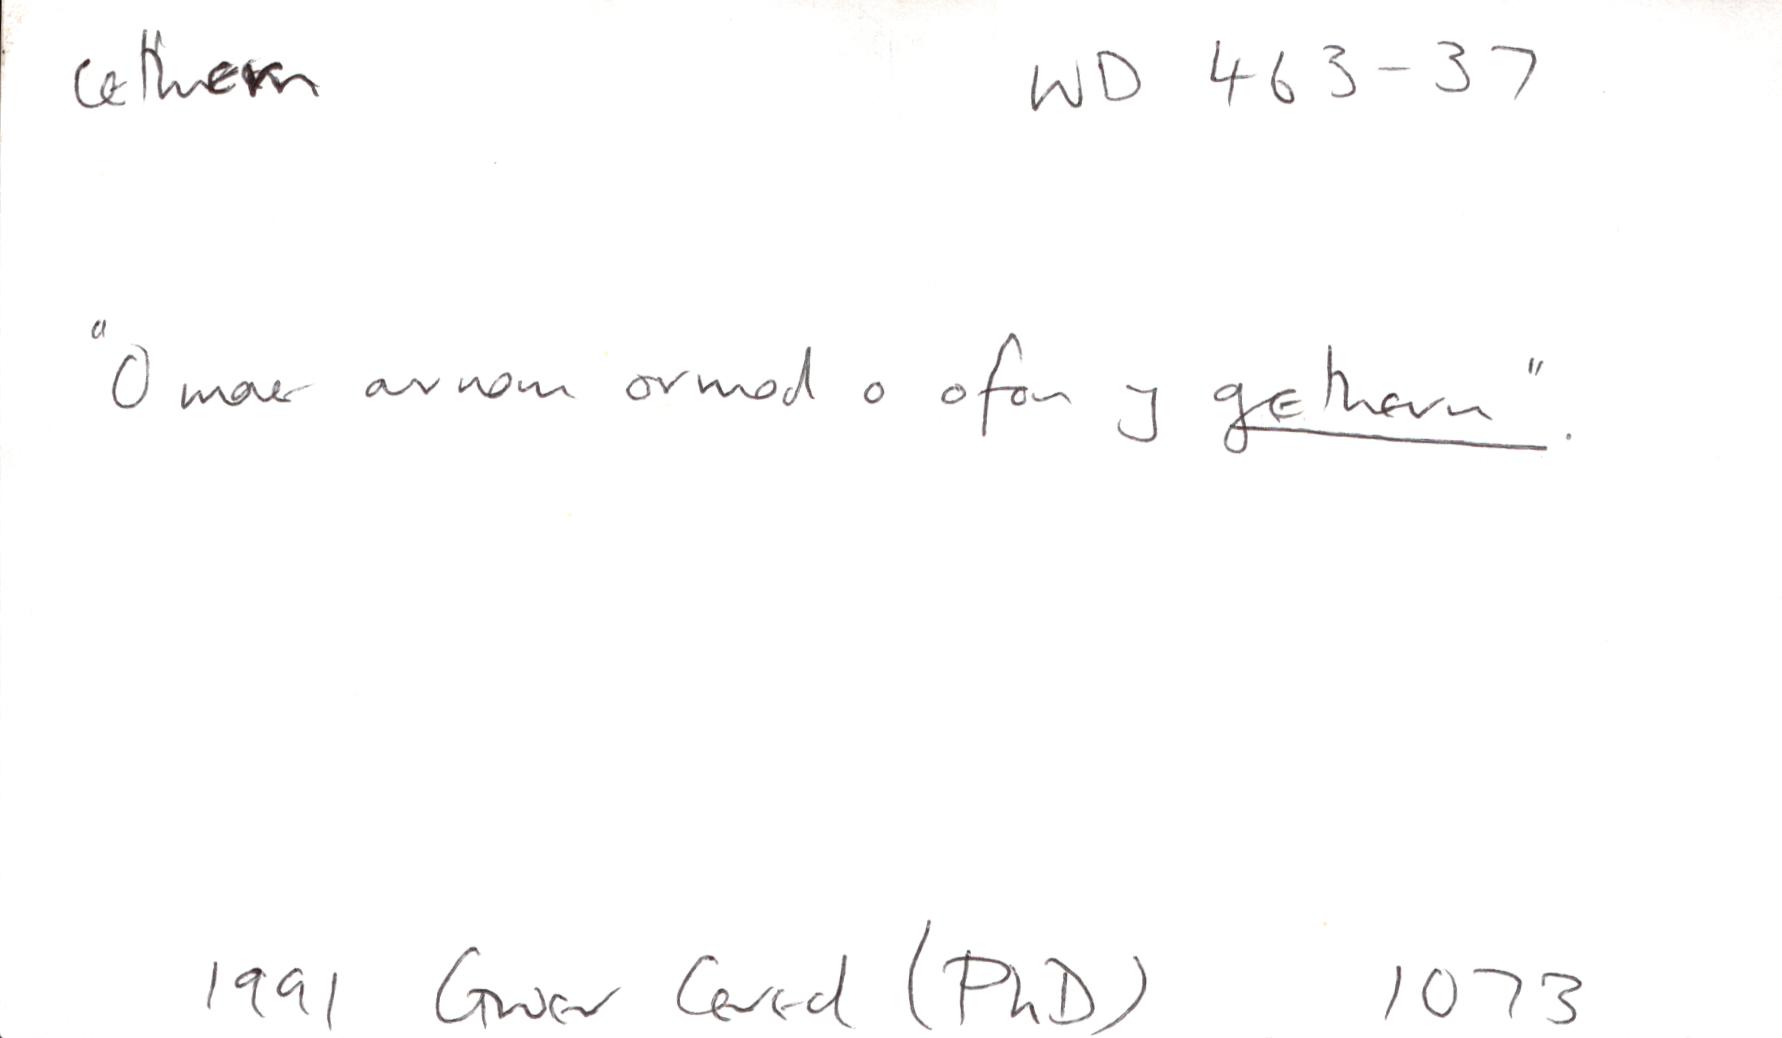 cethern WD 463-37
"O mae arnom ormod o ofan y gethern".
1991 Gwar Cered (PhD) 1073